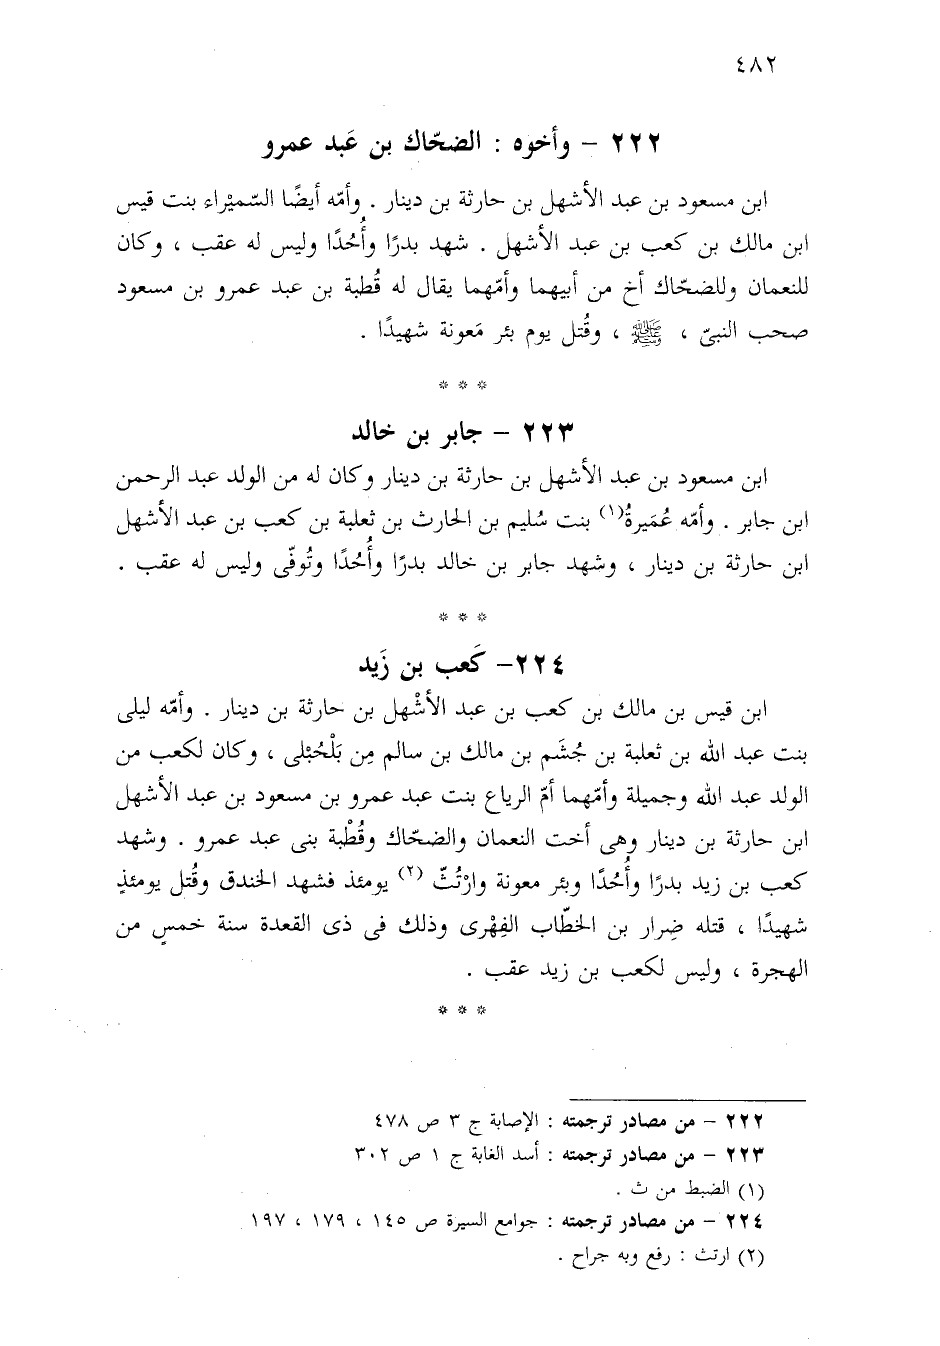 ٤٨٢
٢٢٢ – وأخوه : الضحّاك بن عَبد عمرو
ابن مسعود بن عبد الأشهل بن حارثة بن دينار . وأمّه أيضًا السّميْراء بنت قيس
ابن مالك بن كعب بن عبد الأشهل . شهد بدرًا وأُحُدًا وليس له عقب ، وكان
للنعمان وللضحّاك أخ من أبيهما وأمّهما يقال له قُطبة بن عبد عمرو بن مسعود
صحب النبىّ ، ﷺ ، وقُتل يوم بئر مَعونة شهيدًا .
* * *
٢٢٣ – جابر بن خالد
ابن مسعود بن عبد الأشهل بن حارثة بن دينار وكان له من الولد عبد الرحمن
ابن جابر . وأمّه عُمَيرةُ(١) بنت سُليم بن الحارث بن ثعلبة بن كعب بن عبد الأشهل
ابن حارثة بن دينار ، وشهد جابر بن خالد بدرًا وأُحُدًا وتُوفّى وليس له عقب .
* * *
٢٢٤– كَعب بن زَيد
ابن قيس بن مالك بن كعب بن عبد الأشْهل بن حارثة بن دينار . وأمّه ليلى
بنت عبد الله بن ثعلبة بن جُشَم بن مالك بن سالم مِن بَلْحُبْلى ، وكان لكعب من
الولد عبد الله وجميلة وأمّهما أمّ الرياع بنت عبد عمرو بن مسعود بن عبد الأشهل
ابن حارثة بن دينار وهى أخت النعمان والضحّاك وقُطْبة بنى عبد عمرو . وشهد
كعب بن زيد بدرًا وأُحُدًا وبئر معونة وارْتُثّ (٢) يومئذ فشهد الخندق وقُتل يومئذٍ
شهيدًا ، قتله ضِرار بن الخطّاب الفِهْرى وذلك فى ذى القعدة سنة خمسٍ من
الهجرة ، وليس لكعب بن زيد عقب .
* * *
٢٢٢ – من مصادر ترجمته : الإصابة ج ٣ ص ٤٧٨
٢٢٣ – من مصادر ترجمته : أسد الغابة ج ١ ص ٣٠٢
(١) الضبط من ث .
٢٢٤ – من مصادر ترجمته : جوامع السيرة ص ١٤٥ ، ١٧٩ ، ١٩٧
(٢) ارتث : رفع وبه جراح .